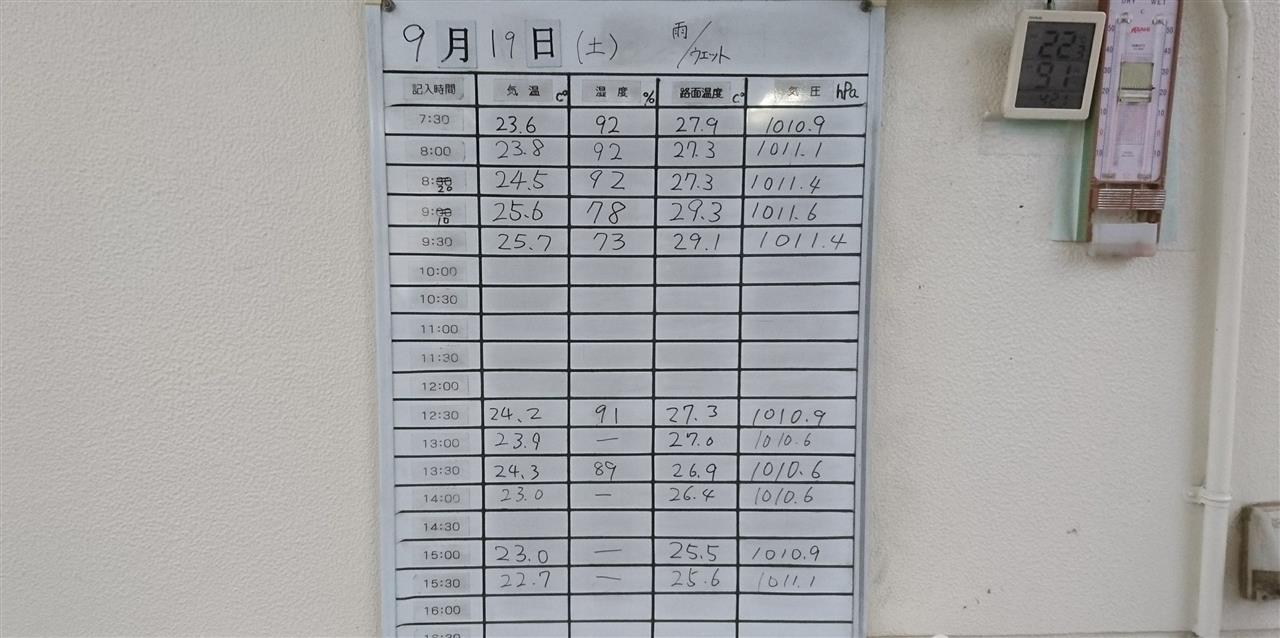 9月19日(土) 雨/ウェット
記入時間 気温 C° 湿度 % 路面温度 C° 気圧 hPa
7:30 23.6 92 27.9 1010.9
8:00 23.8 92 27.3 1011.1
8:20 24.5 92 27.3 1011.4
9:10 25.6 78 29.3 1011.6
9:30 25.7 73 29.1 1011.4
10:00
10:30
11:00
11:30
12:00
12:30 24.2 91 27.3 1010.9
13:00 23.9 — 27.0 1010.6
13:30 24.3 89 26.9 1010.6
14:00 23.0 — 26.4 1010.6
14:30
15:00 23.0 — 25.5 1010.9
15:30 22.7 — 25.6 1011.1
16:00
16:30
DRY WET